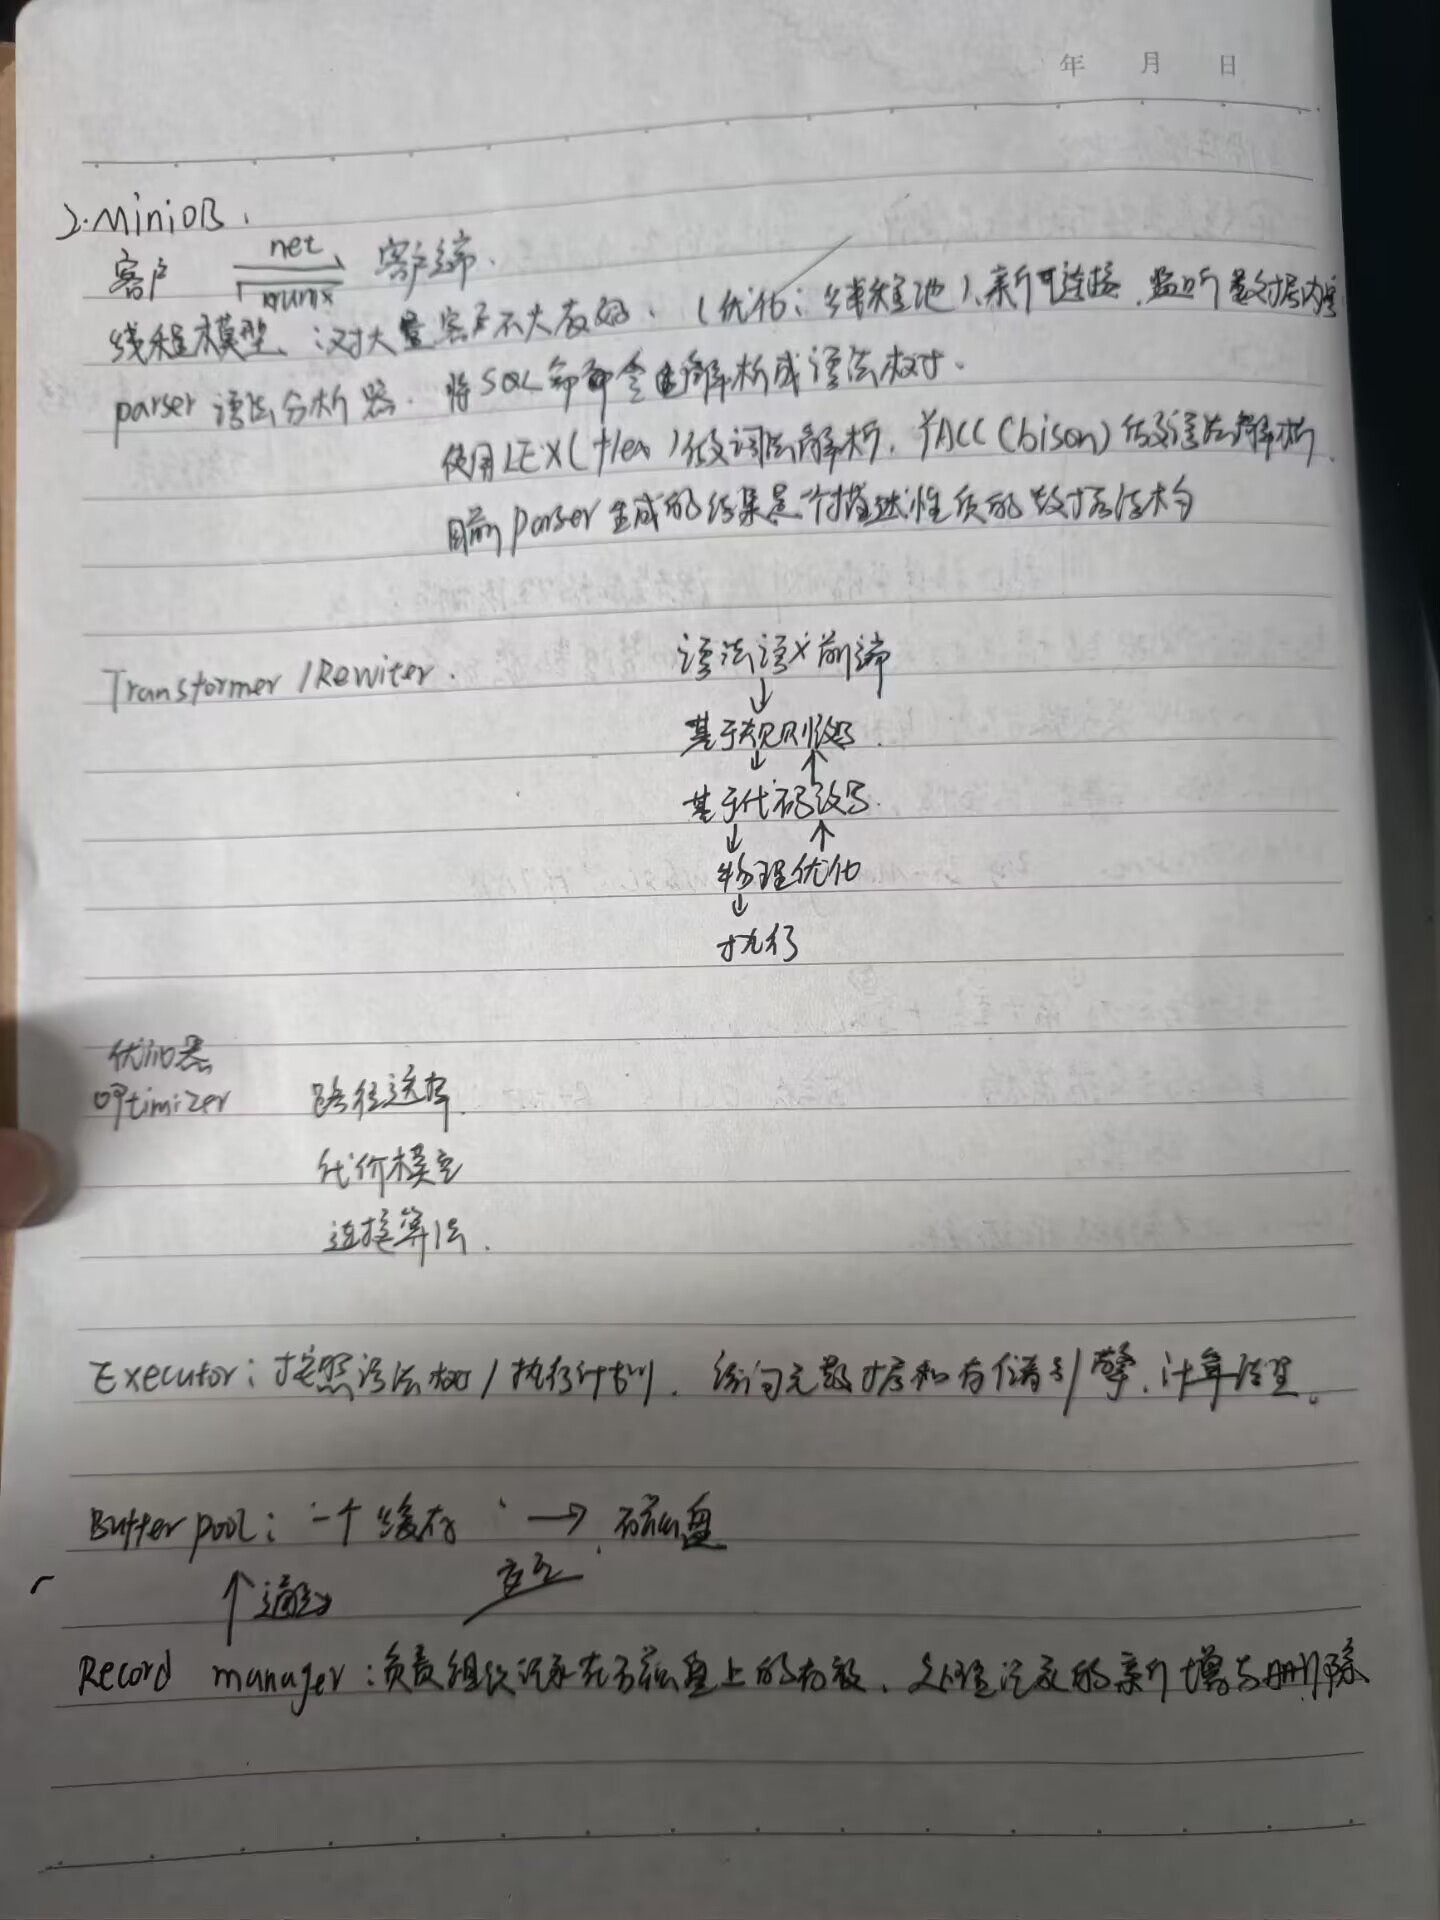 年 月 日
2. MiniOB.
客户 net 客户端.
线程模型、对大量客户不大友好、(优化:线程池)、新可连接,监听数据内容
parser 语法分析器. 将SQL命令解析成语法树.
使用LEX(flex)做词法解析,YACC(bison)做语法解析.
目前parser生成的结果是一个描述性质的数据结构
Transformer/Rewiter. 语法语义前端
↓
基于规则改写.
↓ ↑
基于代码改写.
↓ ↑
物理优化
↓
执行
优化器
Optimizer 路径选择.
代价模型
连接算法.
Executor:按照语法树/执行计划,访问元数据和存储引擎,计算结果。
Buffer pool:一个缓存 → 磁盘
↑通过 交互
Record manager:负责组织记录在磁盘上的存放,处理记录的新增与删除